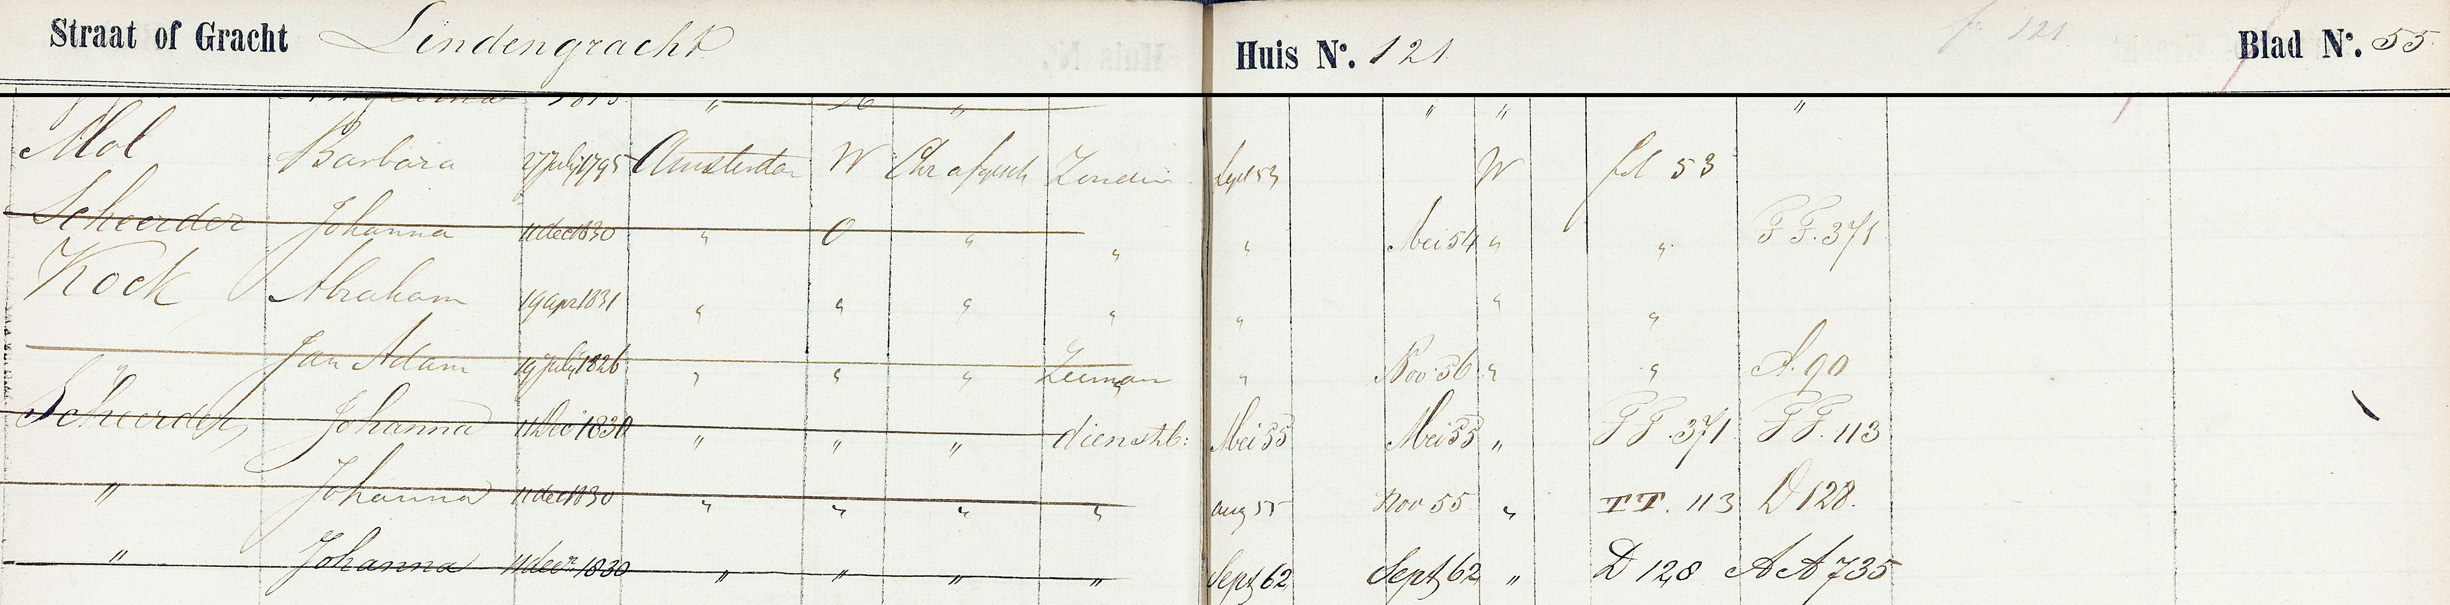 Straat of Gracht Lindengracht Huis No. 121 fo 121 Blad No. 55
" " " " "
Mol Barbara 27 July 1795 Amsterdam W Chr afgesch Sept 53 W fol 53
Scheerder Johanna 11 dec 1830 " O " " " Mei 54 " " FF. 371
Kock Abraham 19 apr 1831 " " " " " " "
" Jan Adam 19 July 1826 " " " Zeeman " Nov 56 " " A. 90
Scheerder Johanna 11 Dec 1830 " " " dienstb: Mei 55 Mei 55 " FF. 371 FF. 113
" Johanna 11 dec 1830 " " " " aug 55 Nov 55 " FF. 113 D 128.
" Johanna 11 decr 1830 " " " " Sept 62 Sept 62 " D 128 AA 735